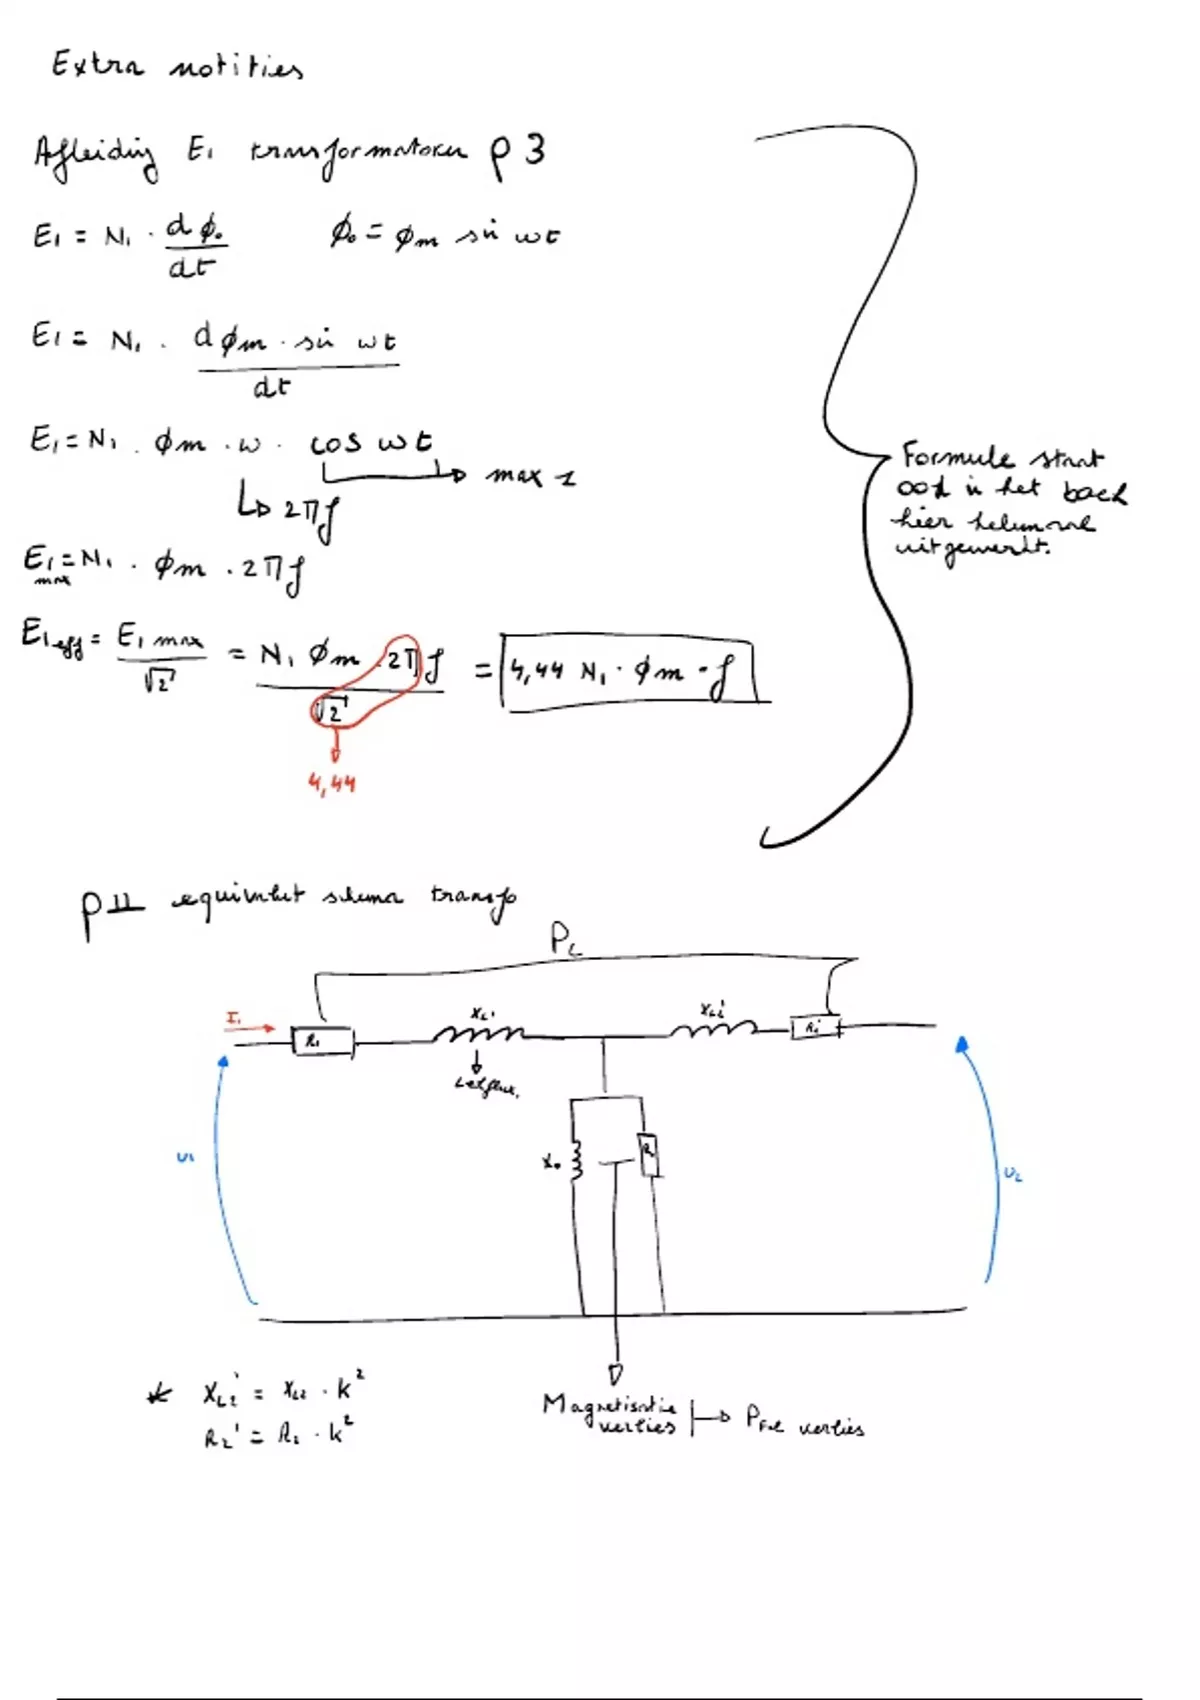 Extra notities
Afleiding E₁ transformatoren p 3
E₁ = N₁ · dϕ₀/dt    ϕ₀ = ϕm sin ωt
E₁ = N₁ · dϕm · sin ωt / dt
E₁ = N₁ · ϕm · ω · cos ωt
→ max 1
↳ 2πf
E₁ max = N₁ · ϕm · 2πf
E₁ eff = E₁ max / √2 = N₁ ϕm · 2πf / √2 = 4,44 N₁ · ϕm · f
4,44
Formule staat
ook in het boek
hier helemaal
uitgewerkt.
p 11 equivalent schema transfo
PL
I₁
R₁
XL₁
XL₂'
R₂'
Lekflux.
U₁
X₀
R₀
U₂
* XL₂' = XL₂ · k²
R₂' = R₂ · k²
Magnetisatie
verlies
→ PFe verlies